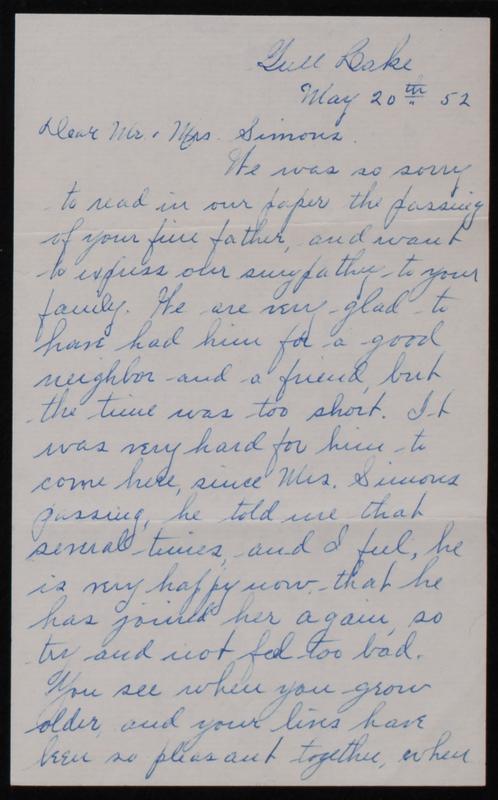 Gull Lake
May 20th 52
Dear Mr. & Mrs. Simons.
We was so sorry
to read in our paper the passing
of your fine father, and want
to express our sympathy to your
family. We are very glad to
have had him for a good
neighbor and a friend, but
the time was too short. It
was very hard for him to
come here, since Mrs. Simons
passing, he told me that
several times, and I feel, he
is very happy now that he
has joined her again, so
try and not feel too bad.
You see when you grow
older, and your lives have
been so pleasant together, when